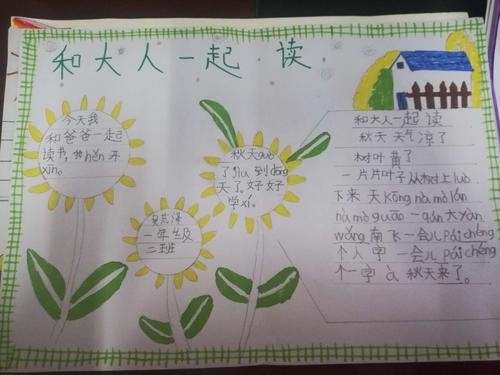 和大人一起 读
今天我
和爸爸一起
读书,我hěn开
xīn。
秋天guò
了jiu 到dōng
天了。好好
学xí。
一年级
二班
和大人一起 读
秋天 天气凉了
树叶 黄了
一片片叶子从树上luò
下来 天kōng nà mò lán
nà mò guāo 一qún大yàn
wǎng南飞一会儿pái chéng
个人字 一会儿pái chéng
个一字 à 秋天来了。